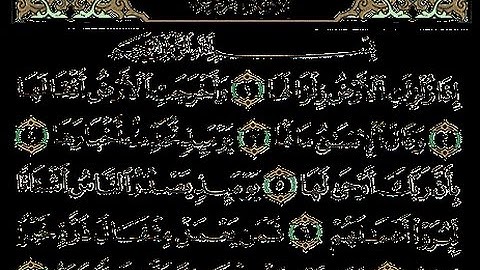 بسم الله الرحمن الرحيم
إذا زلزلت الأرض زلزالها ١ وأخرجت الأرض أثقالها
٢ وقال الإنسان ما لها ٣ يومئذ تحدث أخبارها ٤
بأن ربك أوحى لها ٥ يومئذ يصدر الناس أشتاتا
ليروا أعمالهم ٦ فمن يعمل مثقال ذرة خيرا